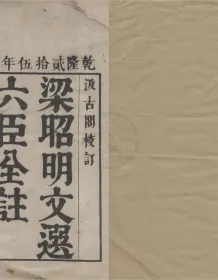 乾隆貳拾伍年
汲古閣校訂
梁昭明文選
六臣全註